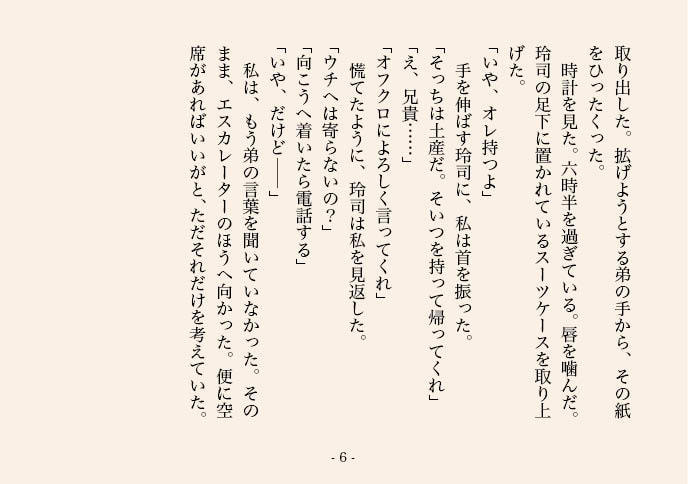 取り出した。拡げようとする弟の手から、その紙
をひったくった。
　時計を見た。六時半を過ぎている。唇を噛んだ。
玲司の足下に置かれているスーツケースを取り上
げた。
「いや、オレ持つよ」
　手を伸ばす玲司に、私は首を振った。
「そっちは土産だ。そいつを持って帰ってくれ」
「え、兄貴……」
「オフクロによろしく言ってくれ」
　慌てたように、玲司は私を見返した。
「ウチへは寄らないの？」
「向こうへ着いたら電話する」
「いや、だけど――」
　私は、もう弟の言葉を聞いていなかった。その
まま、エスカレーターのほうへ向かった。便に空
席があればいいがと、ただそれだけを考えていた。
- 6 -